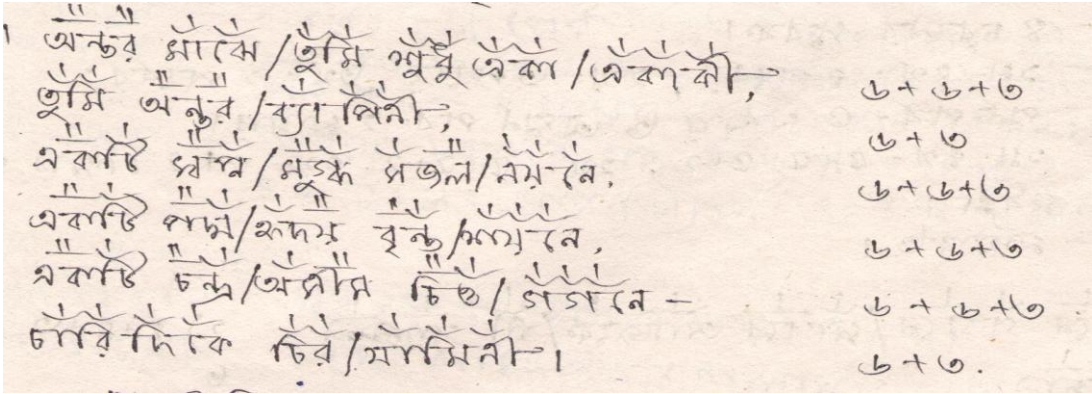 অন্তর মাঝে/তুমি শুধু একা/একাকী, ৬+৬+৩
তুমি অন্তর/ব্যাপিনী, ৬+৩
একটি স্বপ্ন/মুগ্ধ সজল/নয়নে, ৬+৬+৩
একটি পদ্ম/হৃদয় বৃন্ত/শয়নে, ৬+৬+৩
একটি চন্দ্র/অসীম চিত্ত/গগনে – ৬+৬+৩
চারিদিকে চির/যামিনী। ৬+৩.